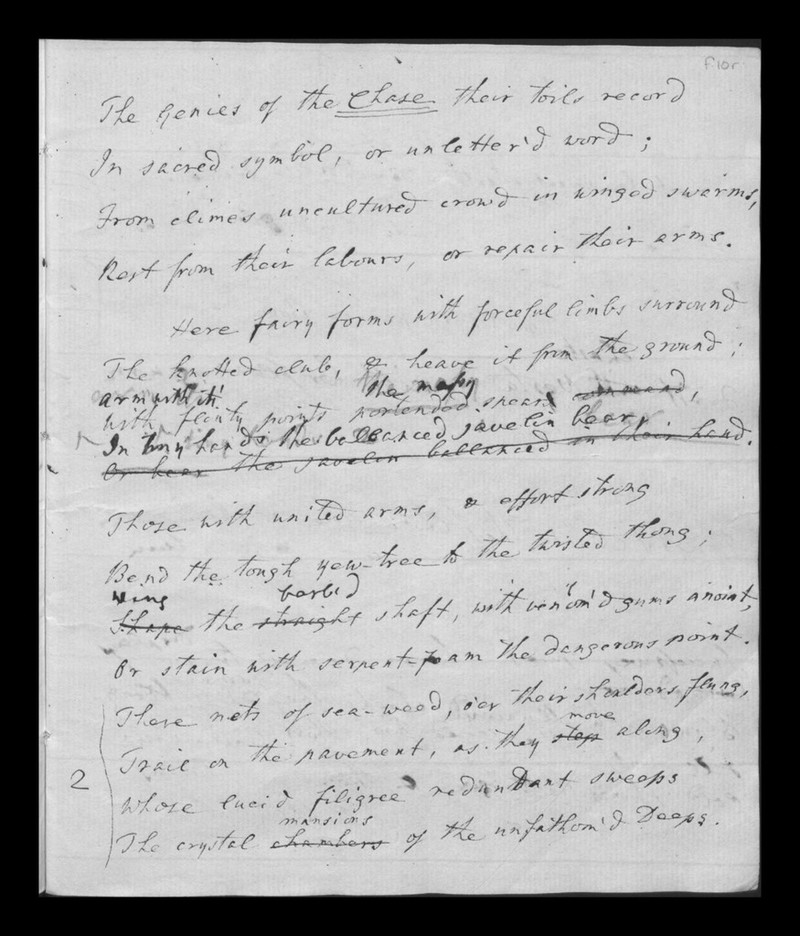 f10r
The Genies of the Chase their toils record
In sacred symbol, or unletter'd word;
From climes uncultured crowd in winged swarms,
Rest from their labours, or repair their arms.
Here fairy forms with forceful limbs surround
The knotted club, & heave it from the ground;
arm with it's the massy
with flinty points portended spear command,
In tiny hands the ballanced javelin bear,
Or bear the javelin ballanced in their hand.
Those with united arms, & effort strong
Bend the tough yew-tree to the twisted thong;
Wing barb'd
Shape the straight shaft, with venom'd gums anoint,
Or stain with serpent-foam the dangerous point.
These nets of sea-weed, o'er their shoulders flung,
move
Trail on the pavement, as they step along,
2
Whose lucid filigree redundant sweeps
mansions
The crystal chambers of the unfathom'd Deeps.